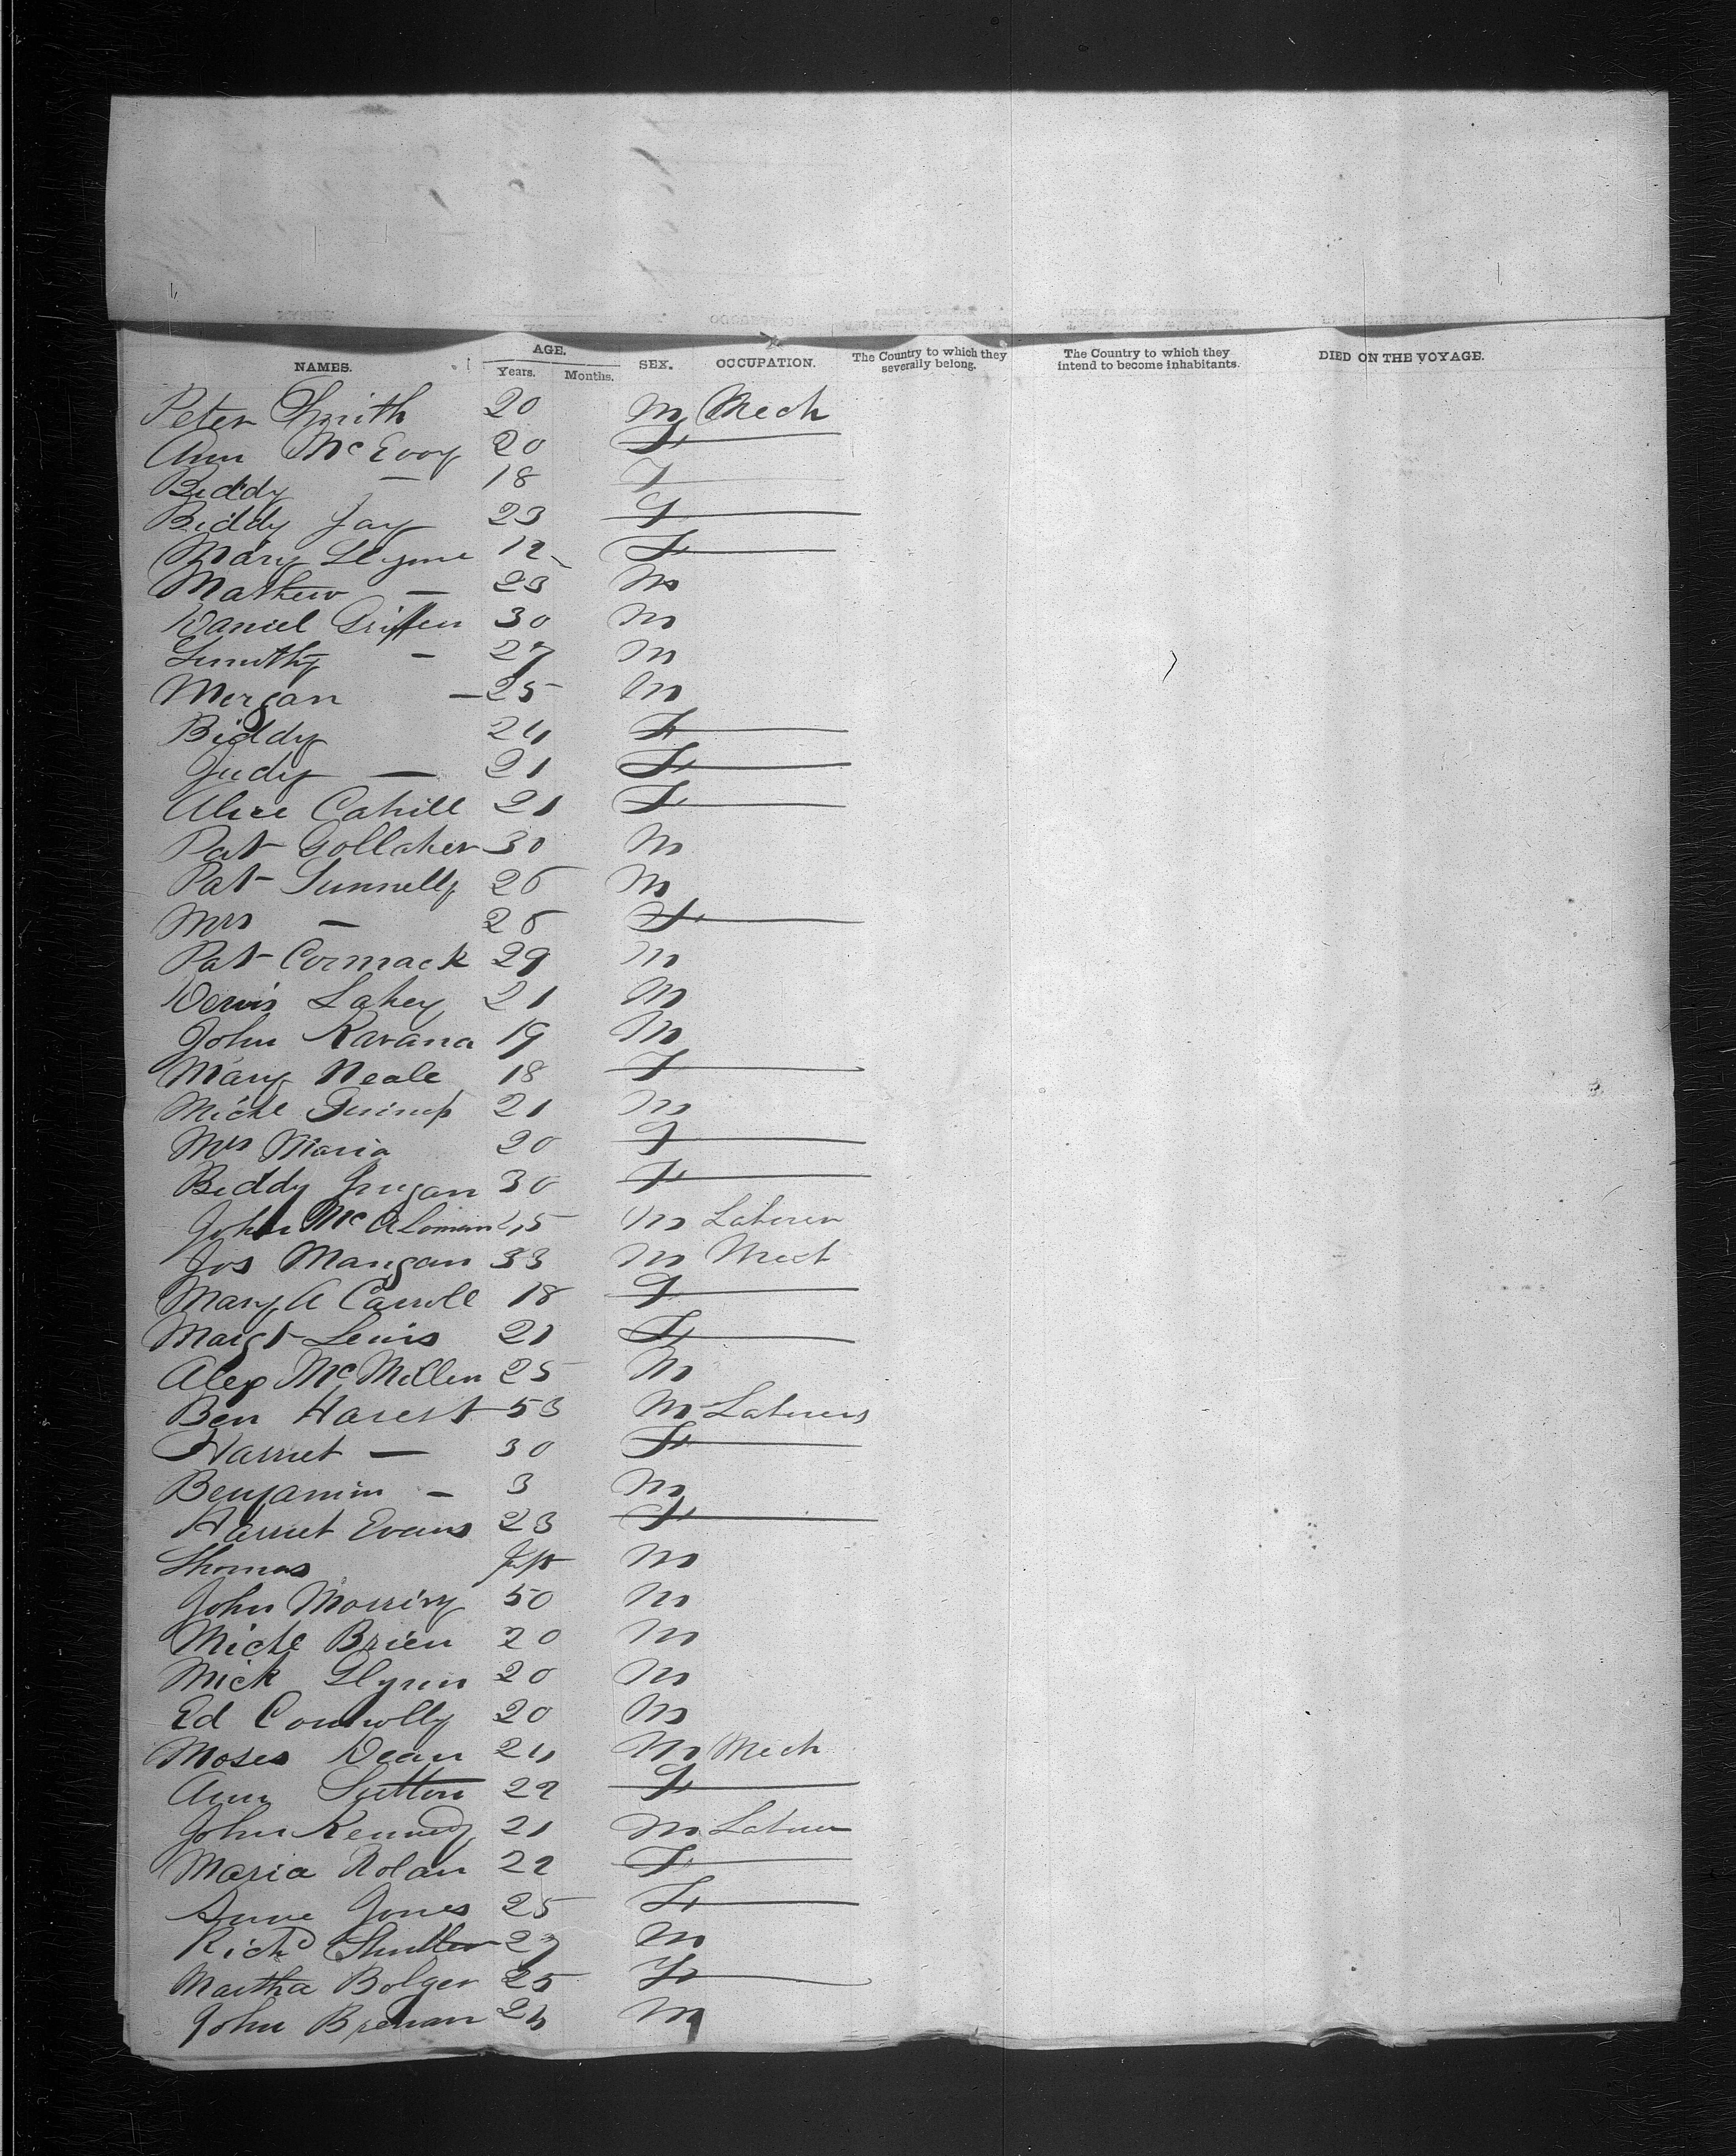 NAMES. AGE. Years. Months. SEX. OCCUPATION. The Country to which they severally belong. The Country to which they intend to become inhabitants. DIED ON THE VOYAGE.
Peter Smith 20 M Mech
Ann McEvoy 20 F
Biddy — 18 F
Biddy Fay 23 F
Mary Glynne 12 F
Mathew — 23 M
Daniel Griffen 30 M
Timothy — 27 M
Morgan — 25 M
Biddy 24 F
Judy — 21 F
Alice Cahill 21 F
Pat Gollaher 30 M
Pat Tunnelly 26 M
Mrs — 26 F
Pat Cormack 29 M
Denis Lahey 21 M
John Kavana 19 M
Mary Neale 18 F
Michl 21 M
Mrs Maria 20 F
Biddy 30 F
John Mc 45 M Laborer
Jos Mangan 33 M Mech
Mary A Carroll 18 F
Margt Lewis 21 F
Alex McMillen 25 M
Ben Harest 53 M Laborers
Harriet — 30 F
Benjamin — 3 M
Harriet Evans 23 F
Thomas Inft M
John 50 M
Michl Brien 20 M
Mick Glynn 20 M
Ed Connolly 20 M
Moses Dean 24 M Mech
Ann Sutton 22 F
John Kennedy 21 M Laborer
Maria Nolan 22 F
Anne Jones 25 F
Richd 27 M
Martha Bolger 25 F
John Brenan 24 M